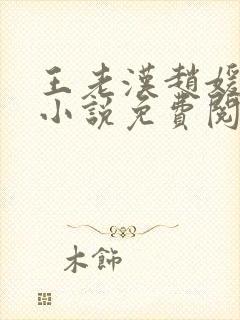 王老漢趙媛
小說免費閱
木飾